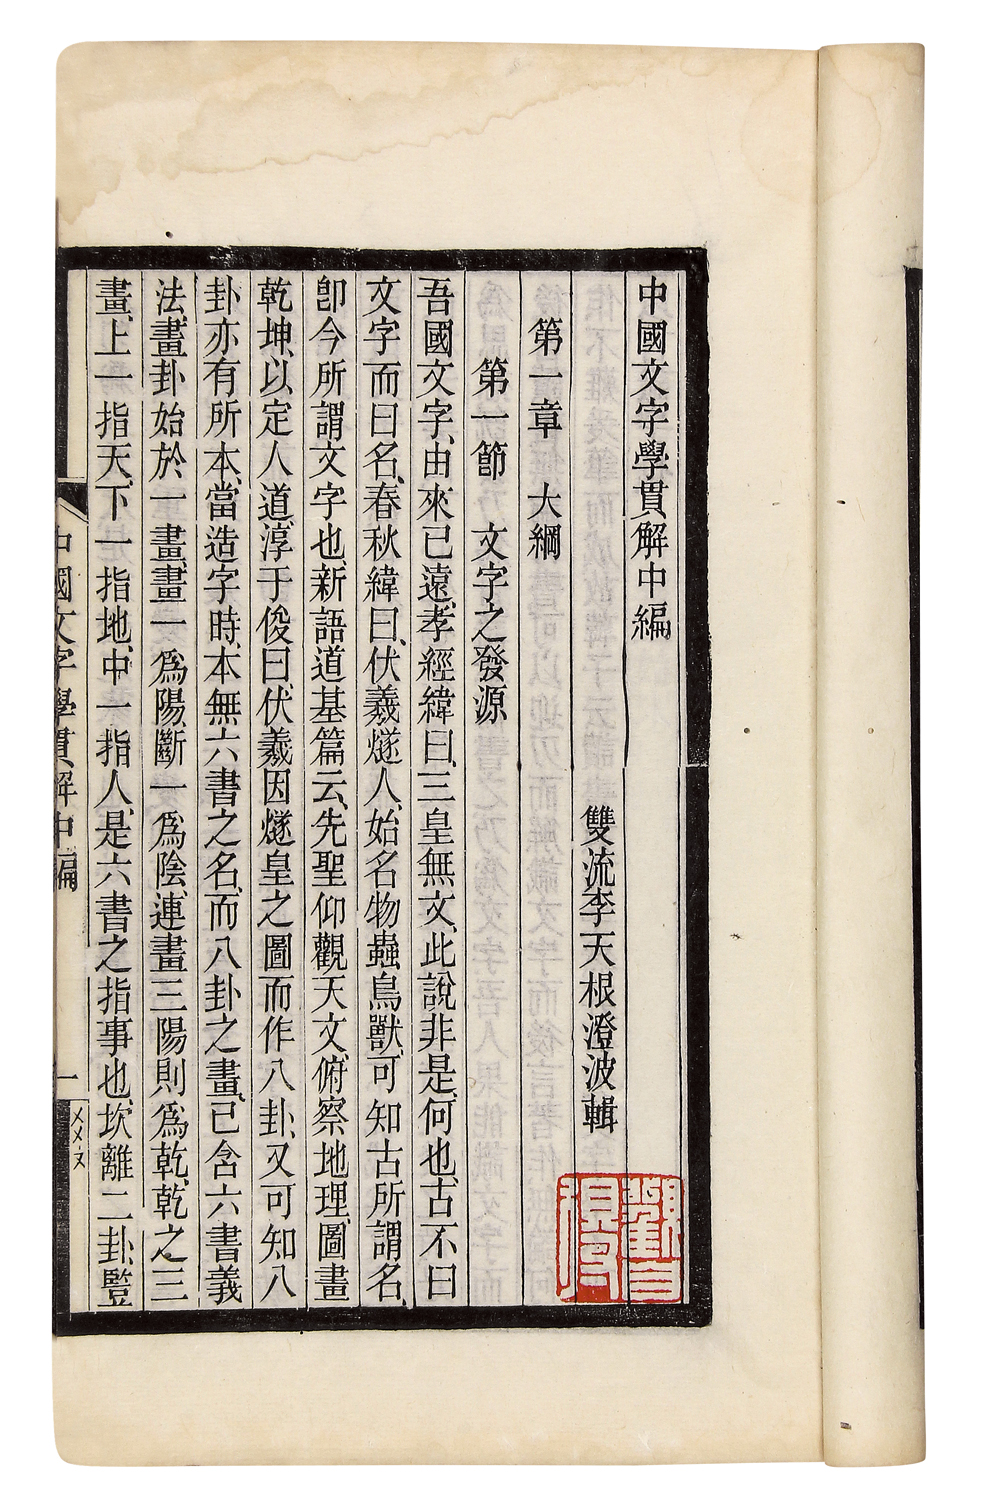 中國文字學貫解中編
雙流李天根澄波輯
第一章 大綱
第一節 文字之發源
吾國文字、由來已遠、孝經緯曰、三皇無文、此說非是、何也、古不曰
文字而曰名、春秋緯曰、伏羲燧人、始名物蟲鳥獸、可知古所謂名、
卽今所謂文字也、新語道基篇云、先聖仰觀天文、俯察地理、圖畫
乾坤、以定人道、淳于俊曰、伏羲因燧皇之圖而作八卦、又可知八
卦亦有所本、當造字時、本無六書之名、而八卦之畫、已含六書義
法、畫卦始於一畫、畫一爲陽、斷一爲陰、連畫三陽則爲乾、乾之三
畫、上一指天、下一指地、中一指人、是六書之指事也、坎離二卦、豎
中國文字學貫解中編
一